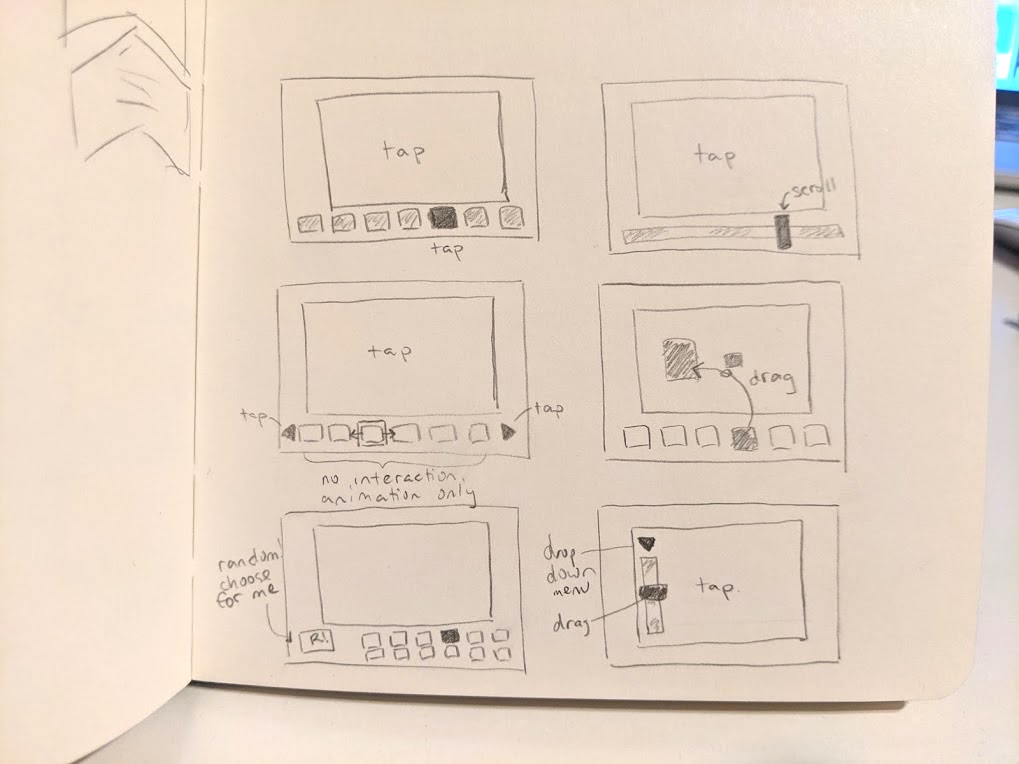 tap
tap
tap
scroll
tap
tap
tap
no interaction,
animation only
drag
random!
choose
for me
R!
drop
down
menu
drag
tap.